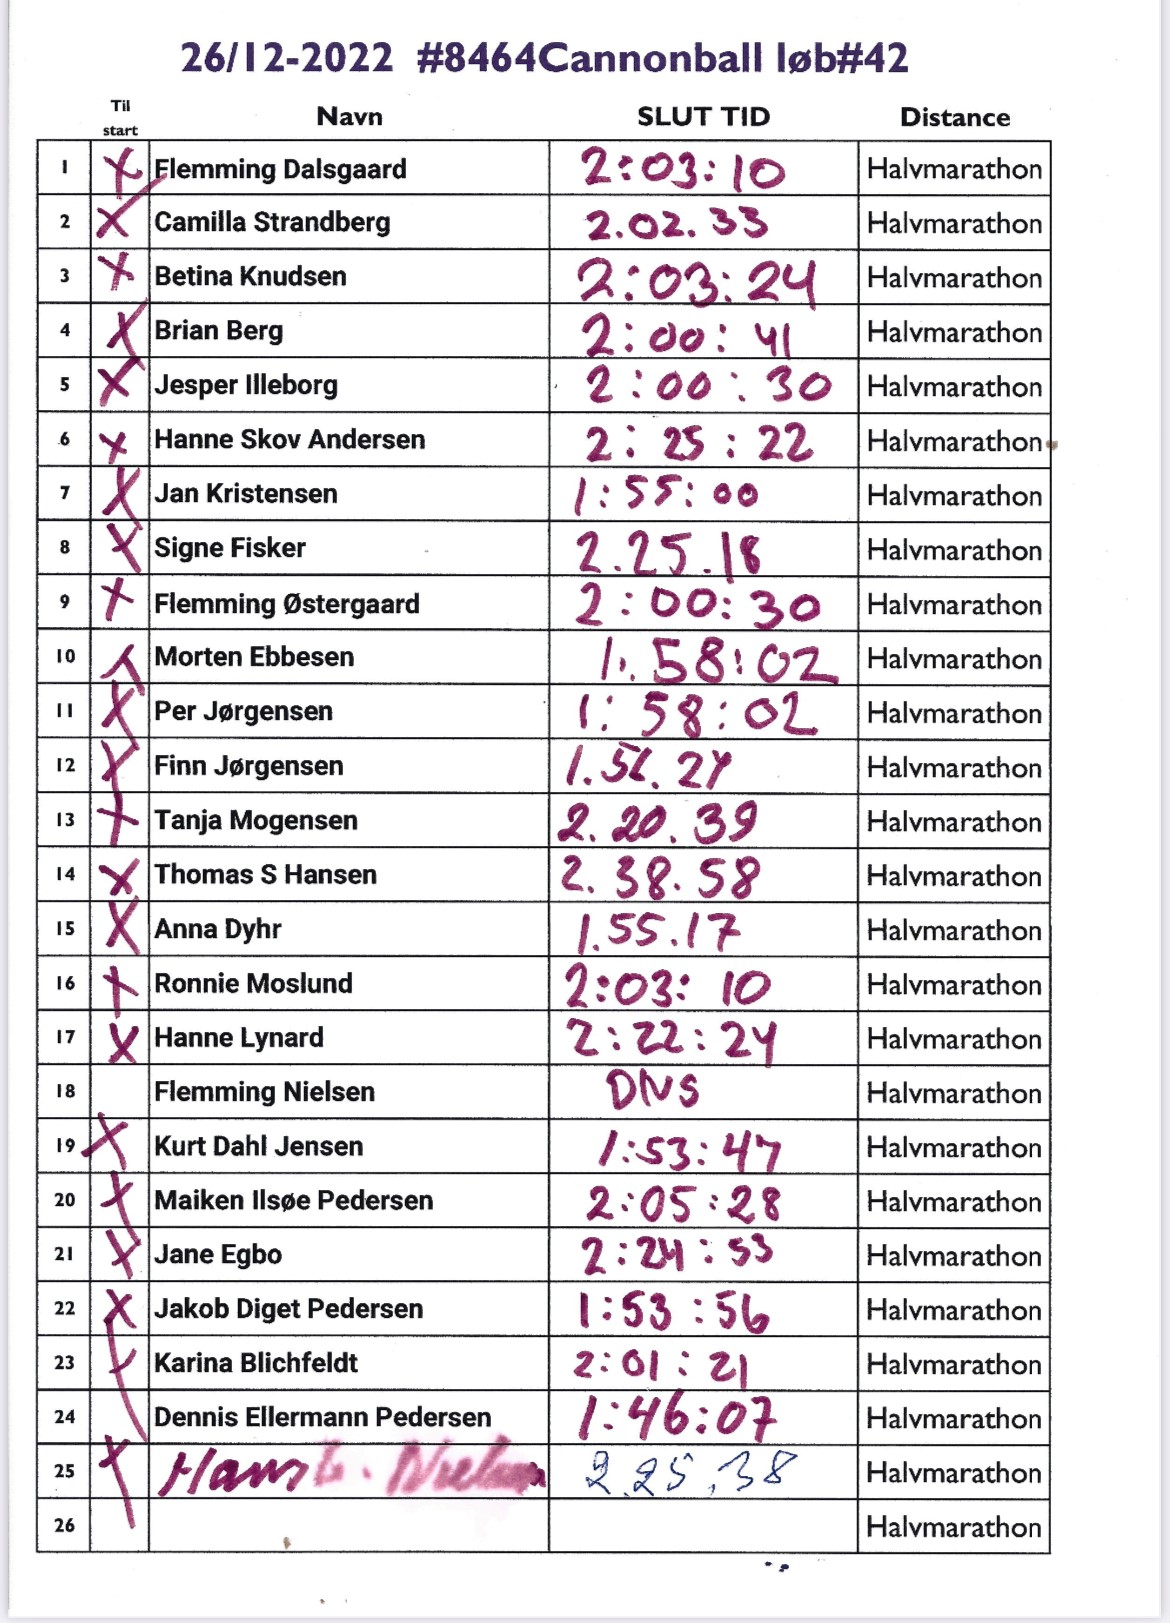 26/12-2022 #8464Cannonball løb#42
Til start Navn SLUT TID Distance
1 X Flemming Dalsgaard 2:03:10 Halvmarathon
2 X Camilla Strandberg 2.02.33 Halvmarathon
3 X Betina Knudsen 2:03:24 Halvmarathon
4 X Brian Berg 2:00:41 Halvmarathon
5 X Jesper Illeborg 2:00:30 Halvmarathon
6 X Hanne Skov Andersen 2:25:22 Halvmarathon
7 X Jan Kristensen 1:55:00 Halvmarathon
8 X Signe Fisker 2.25.18 Halvmarathon
9 X Flemming Østergaard 2:00:30 Halvmarathon
10 X Morten Ebbesen 1:58:02 Halvmarathon
11 X Per Jørgensen 1:58:02 Halvmarathon
12 X Finn Jørgensen Halvmarathon
13 X Tanja Mogensen 2.20.39 Halvmarathon
14 X Thomas S Hansen 2.38.58 Halvmarathon
15 X Anna Dyhr 1.55.17 Halvmarathon
16 X Ronnie Moslund 2:03:10 Halvmarathon
17 X Hanne Lynard 2:22:24 Halvmarathon
18 Flemming Nielsen DNS Halvmarathon
19 X Kurt Dahl Jensen 1:53:47 Halvmarathon
20 X Maiken Ilsøe Pedersen 2:05:28 Halvmarathon
21 X Jane Egbo 2:24:53 Halvmarathon
22 X Jakob Diget Pedersen 1:53:56 Halvmarathon
23 X Karina Blichfeldt 2:01:21 Halvmarathon
24 Dennis Ellermann Pedersen 1:46:07 Halvmarathon
25 X Hans Nielsen 2.25.38 Halvmarathon
26 Halvmarathon